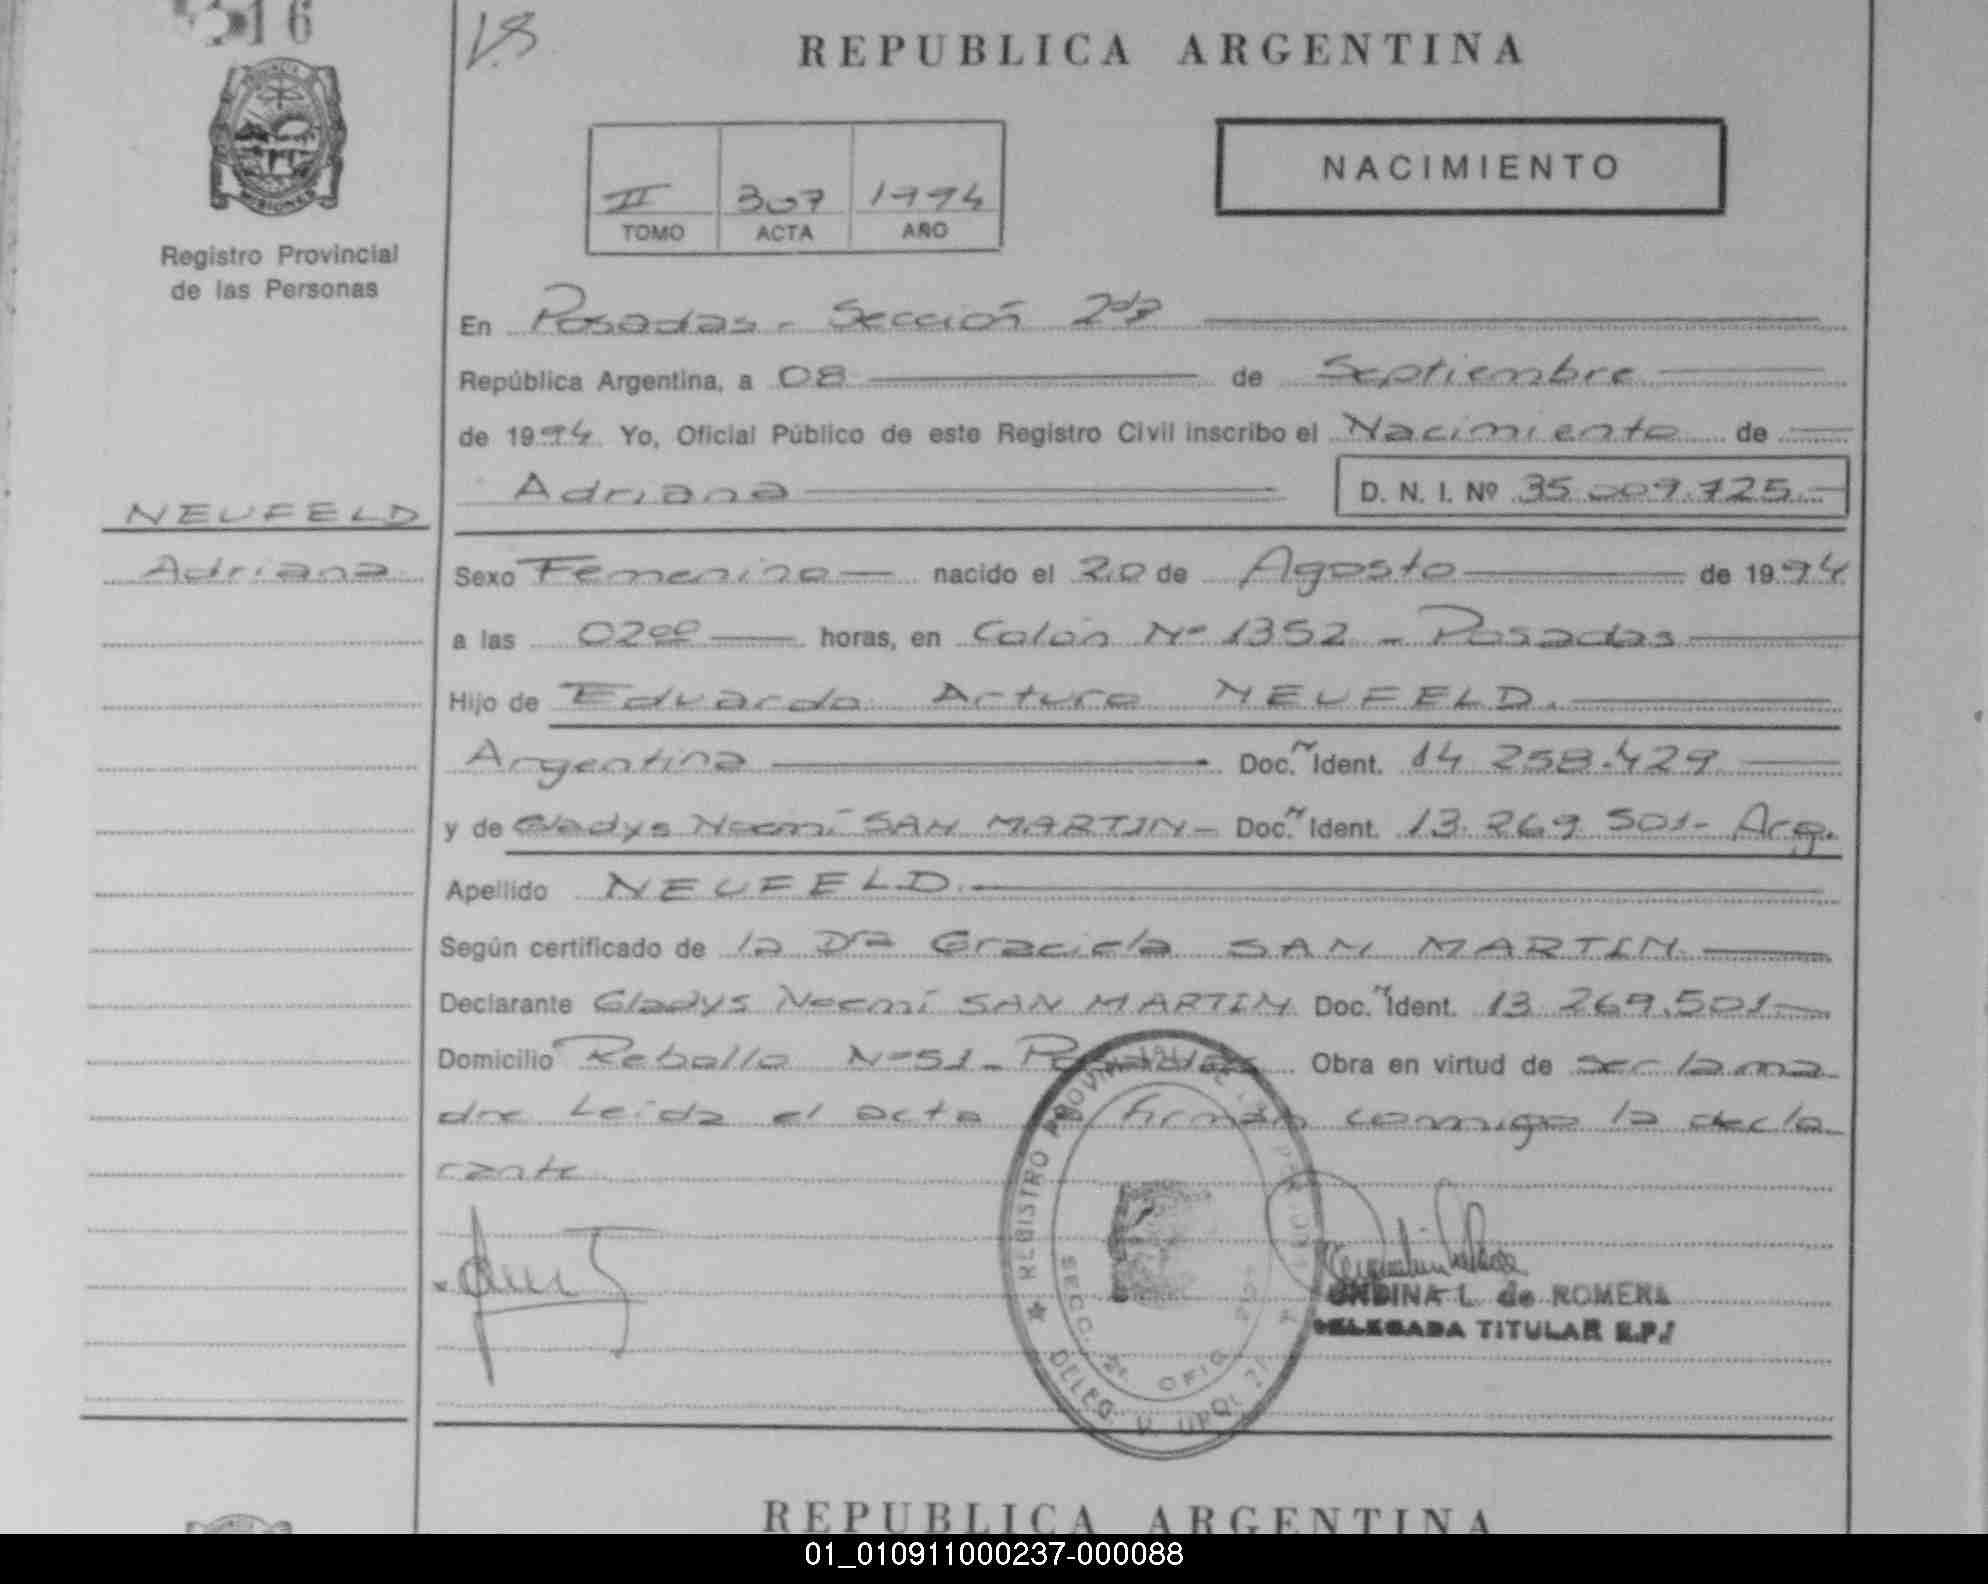 16
VS
REPUBLICA ARGENTINA
NACIMIENTO
II 307 1994
TOMO ACTA AÑO
MISIONES
Registro Provincial
de las Personas
En Posadas - Sección 2da
República Argentina, a 08 de Septiembre
de 1994 Yo, Oficial Público de este Registro Civil inscribo el Nacimiento de
Adriana D. N. I. Nº 35.009.725.
NEUFELD
Adriana
Sexo Femenino nacido el 20 de Agosto de 1994
a las 02ºº horas, en Colón Nº 1352 - Posadas
Hijo de Eduardo Arturo NEUFELD.
Argentina Doc. Ident. 14 258.429
y de Gladys Noemí SAN MARTIN - Doc. Ident. 13.269 501- Arg.
Apellido NEUFELD.
Según certificado de la Dra Graciela SAN MARTIN
Declarante Gladys Noemí SAN MARTIN Doc. Ident. 13 269.501-
Domicilio Rebollo Nº 51 - Posadas Obra en virtud de ser la ma
dre Leida el acta firman comigo la decla
rante
REGISTRO PROVINCIAL DE LAS PERSONAS
SECC. 2a. OFIC.
DELEG.
L. de ROMERA
DELEGADA TITULAR R.P.
REPUBLICA ARGENTINA
01_010911000237-000088